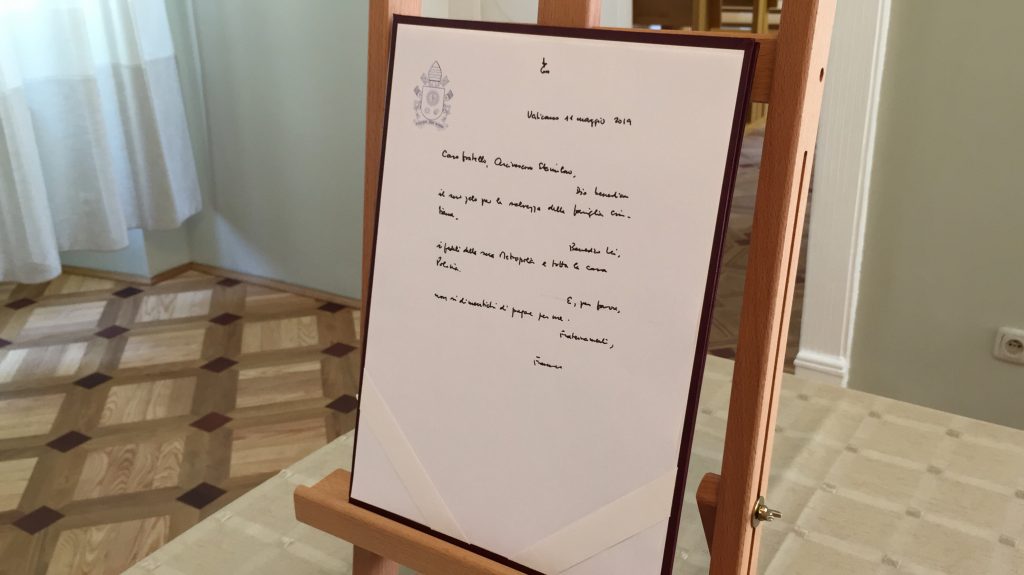 Vaticano 11 maggio 2019
Caro fratello, Arcivescovo Stanislao,
Dio benedica
il suo zelo per la salvezza delle famiglie cris-
tiane.
Benedica Lei,
i fedeli della sua Metropoli e tutta la cara
Polonia.
E, per favore,
non si dimentichi di pregare per me.
Fraternamente,
Francesco